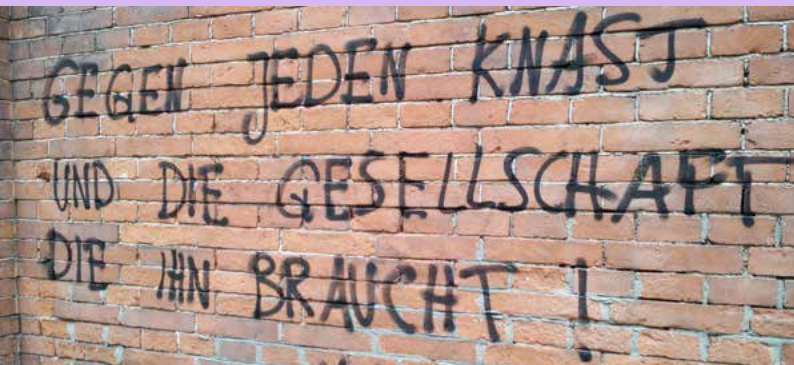 GEGEN JEDEN KNAST
UND DIE GESELLSCHAFT
DIE IHN BRAUCHT !